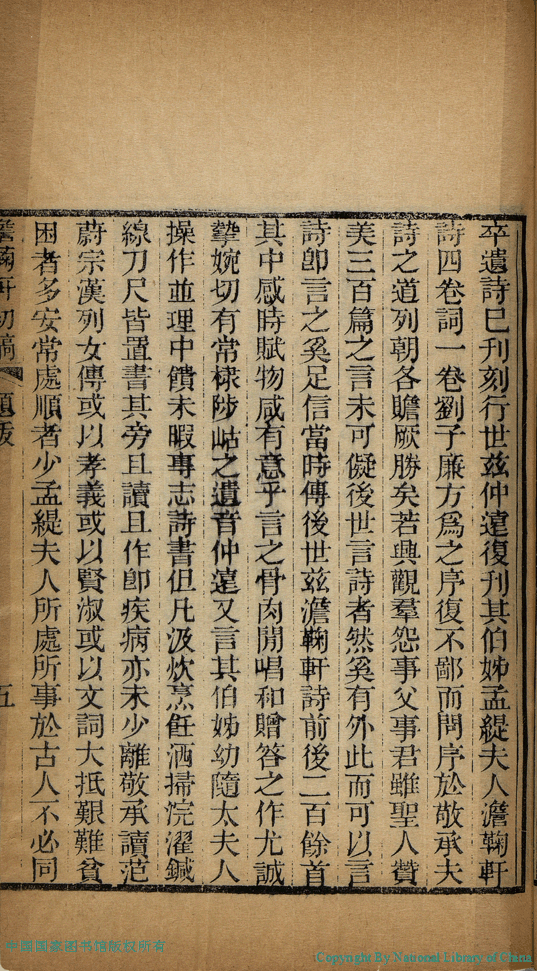 卒遺詩已刋刻行世茲仲遠復刋其伯姊孟緹夫人澹鞠軒
詩四卷詞一卷劉子廉方爲之序復不鄙而問序於敬承夫
詩之道列朝各贍厥勝矣若興觀羣怨事父事君雖聖人贊
美三百篇之言未可儗後世言詩者然奚有外此而可以言
詩卽言之奚足信當時傳後世茲澹鞠軒詩前後二百餘首
其中感時賦物咸有意乎言之骨肉閒唱和贈答之作尤誠
摯婉切有常棣陟岵之遺音仲遠又言其伯姊幼隨太夫人
操作並理中饋未暇專志詩書但凡汲炊烹飪洒掃浣濯鍼
線刀尺皆置書其旁且讀且作卽疾病亦未少離敬承讀范
蔚宗漢列女傳或以孝義或以賢淑或以文詞大抵艱難貧
困者多安常處順者少孟緹夫人所處所事於古人不必同
澹鞠軒初稿 題跋 五
中国国家图书馆版权所有
(Copyright By National Library of China